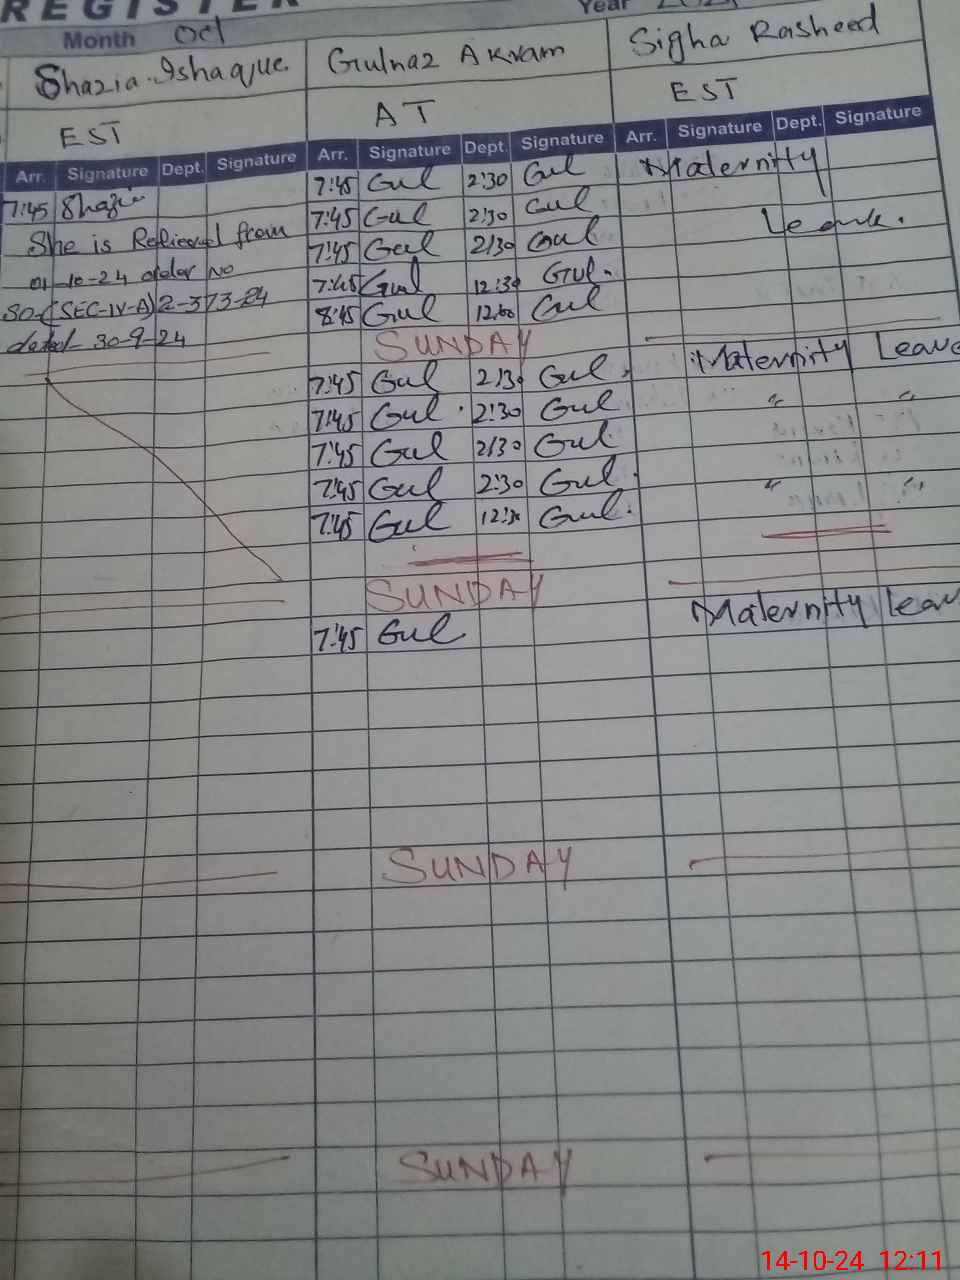 REGISTER
Year
Month Oct
Shazia Ishaque Gulnaz Akram Sigha Rasheed
EST AT EST
Arr. Signature Dept. Signature Arr. Signature Dept. Signature Arr. Signature Dept. Signature
7:45 Shazia 7:45 Gul 2:30 Gul Maternity
She is Relieved from 7:45 Gul 2:30 Gul Leave.
01-10-24 order No 7:45 Gul 2:30 Gul
SO-(SEC-IV-A)2-373-24 7:45 Gul 12:30 Gul.
dated 30-9-24 8:45 Gul 12:00 Gul
SUNDAY
7:45 Gul 2:30 Gul. Maternity Leave
7:45 Gul 2:30 Gul " "
7:45 Gul 2:30 Gul
7:45 Gul 2:30 Gul " "
7:45 Gul 12:30 Gul.
SUNDAY
7:45 Gul Maternity Leav
SUNDAY
SUNDAY
14-10-24 12:11